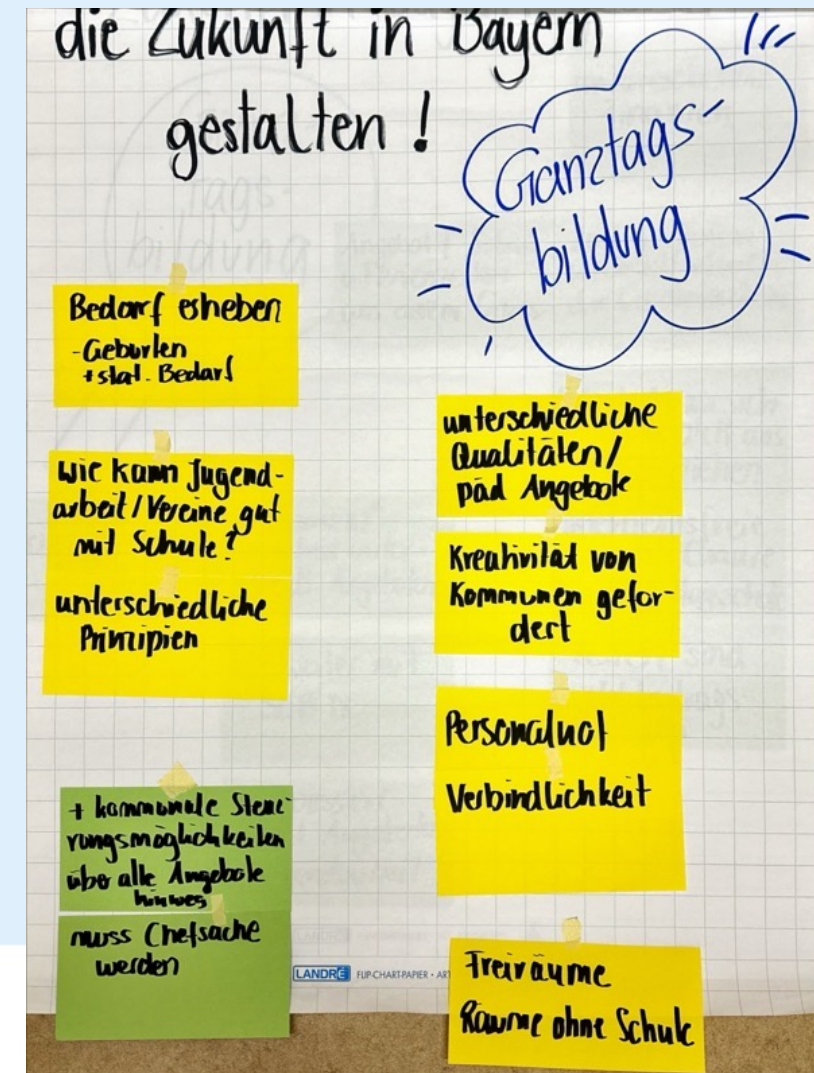 die Zukunft in Bayern
gestalten !
Ganztags-
bildung
Bedarf erheben
- Geburten
+ stat. Bedarf
wie kann Jugend-
arbeit / Vereine gut
mit Schule?
unterschiedliche
Prinzipien
+ kommunale Steue-
rungsmöglichkeiten
über alle Angebote
hinweg
muss Chefsache
werden
unterschiedliche
Qualitäten /
päd Angebote
Kreativität von
Kommunen gefor-
dert
Personalnot
Verbindlichkeit
Freiräume
Räume ohne Schule
LANDRÉ FLIP-CHART-PAPIER • ART